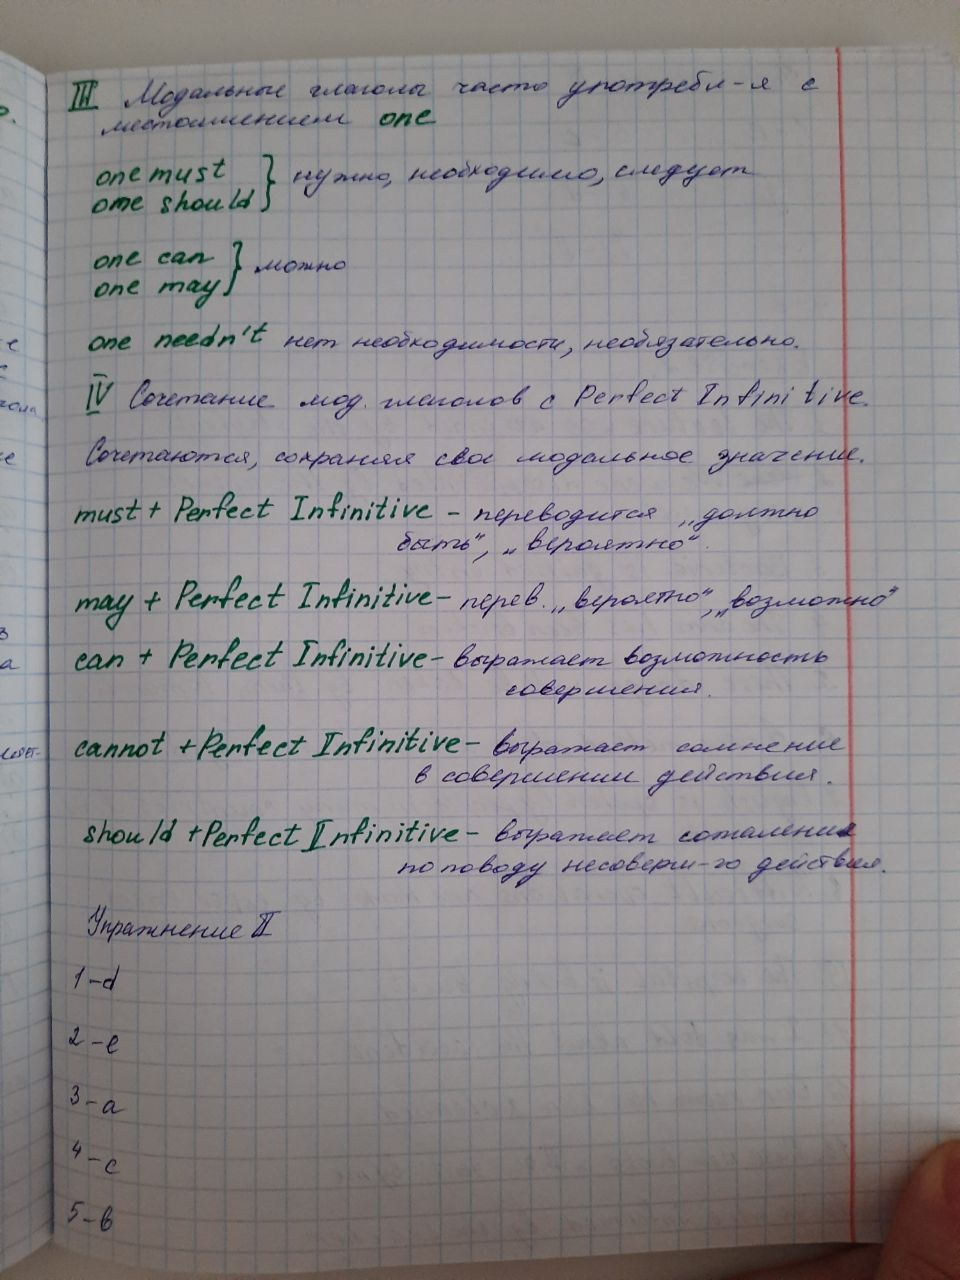 III Модальные глаголы часто употребл-я с
местоимением one
one must } нужно, необходимо, следует
one should
one can } можно
one may
one needn't нет необходимости, необязательно.
IV Сочетание мод. глаголов с Perfect Infinitive
Сочетаются, сохраняя свое модальное значение.
must + Perfect Infinitive - переводится „должно
быть", „вероятно".
may + Perfect Infinitive - перев. „вероятно", „возможно"
can + Perfect Infinitive - выражает возможность
совершения.
cannot + Perfect Infinitive - выражает сомнение
в совершении действия.
should + Perfect Infinitive - выражает сожаление
по поводу несоверш-го действия.
Упражнение II
1-d
2-e
3-a
4-c
5-в